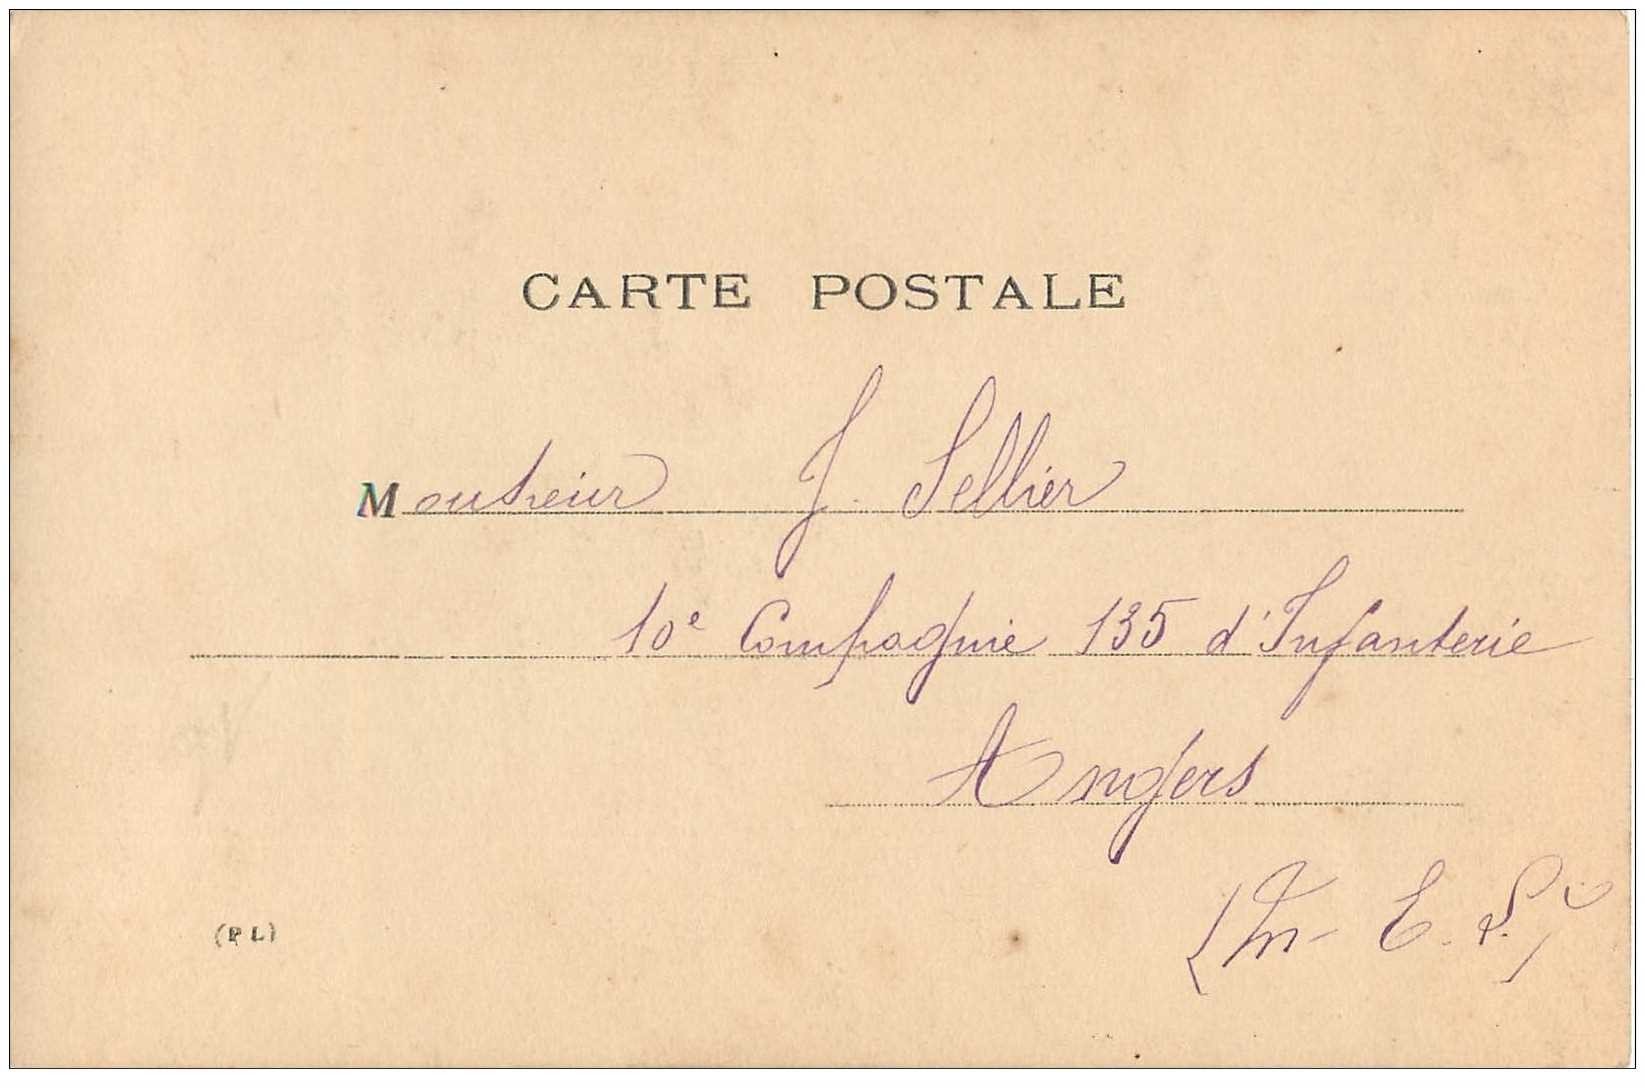 CARTE POSTALE
Monsieur J. Sellier
10e Compagnie 135 d'Infanterie
Angers
(M-E.S.)
(P L)